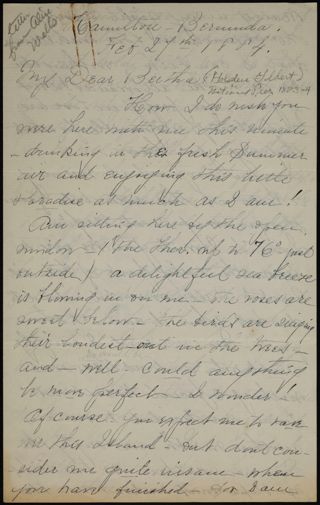 Hamilton - Bermuda.
Feb 27th 1884.
My Dear Bertha (Holden Gilbert)
National Pres 1883-4
How I do wish you
were here with me this minute
- drinking in the fresh Summer
air and enjoying this little
Paradise as much as I am!
Am sitting here by the open
window - (The Ther. up to 76° just
outside) a delightful sea breeze
is blowing in on me - The roses are
sweet below - The birds are singing
their loudest - out in the trees -
and - well - could anything
be more perfect - I wonder!
Of course you expect me to rave
over this Island - but dont con-
sider me quite insane - when
you have finished - for I am
letter
from Alice
Wells